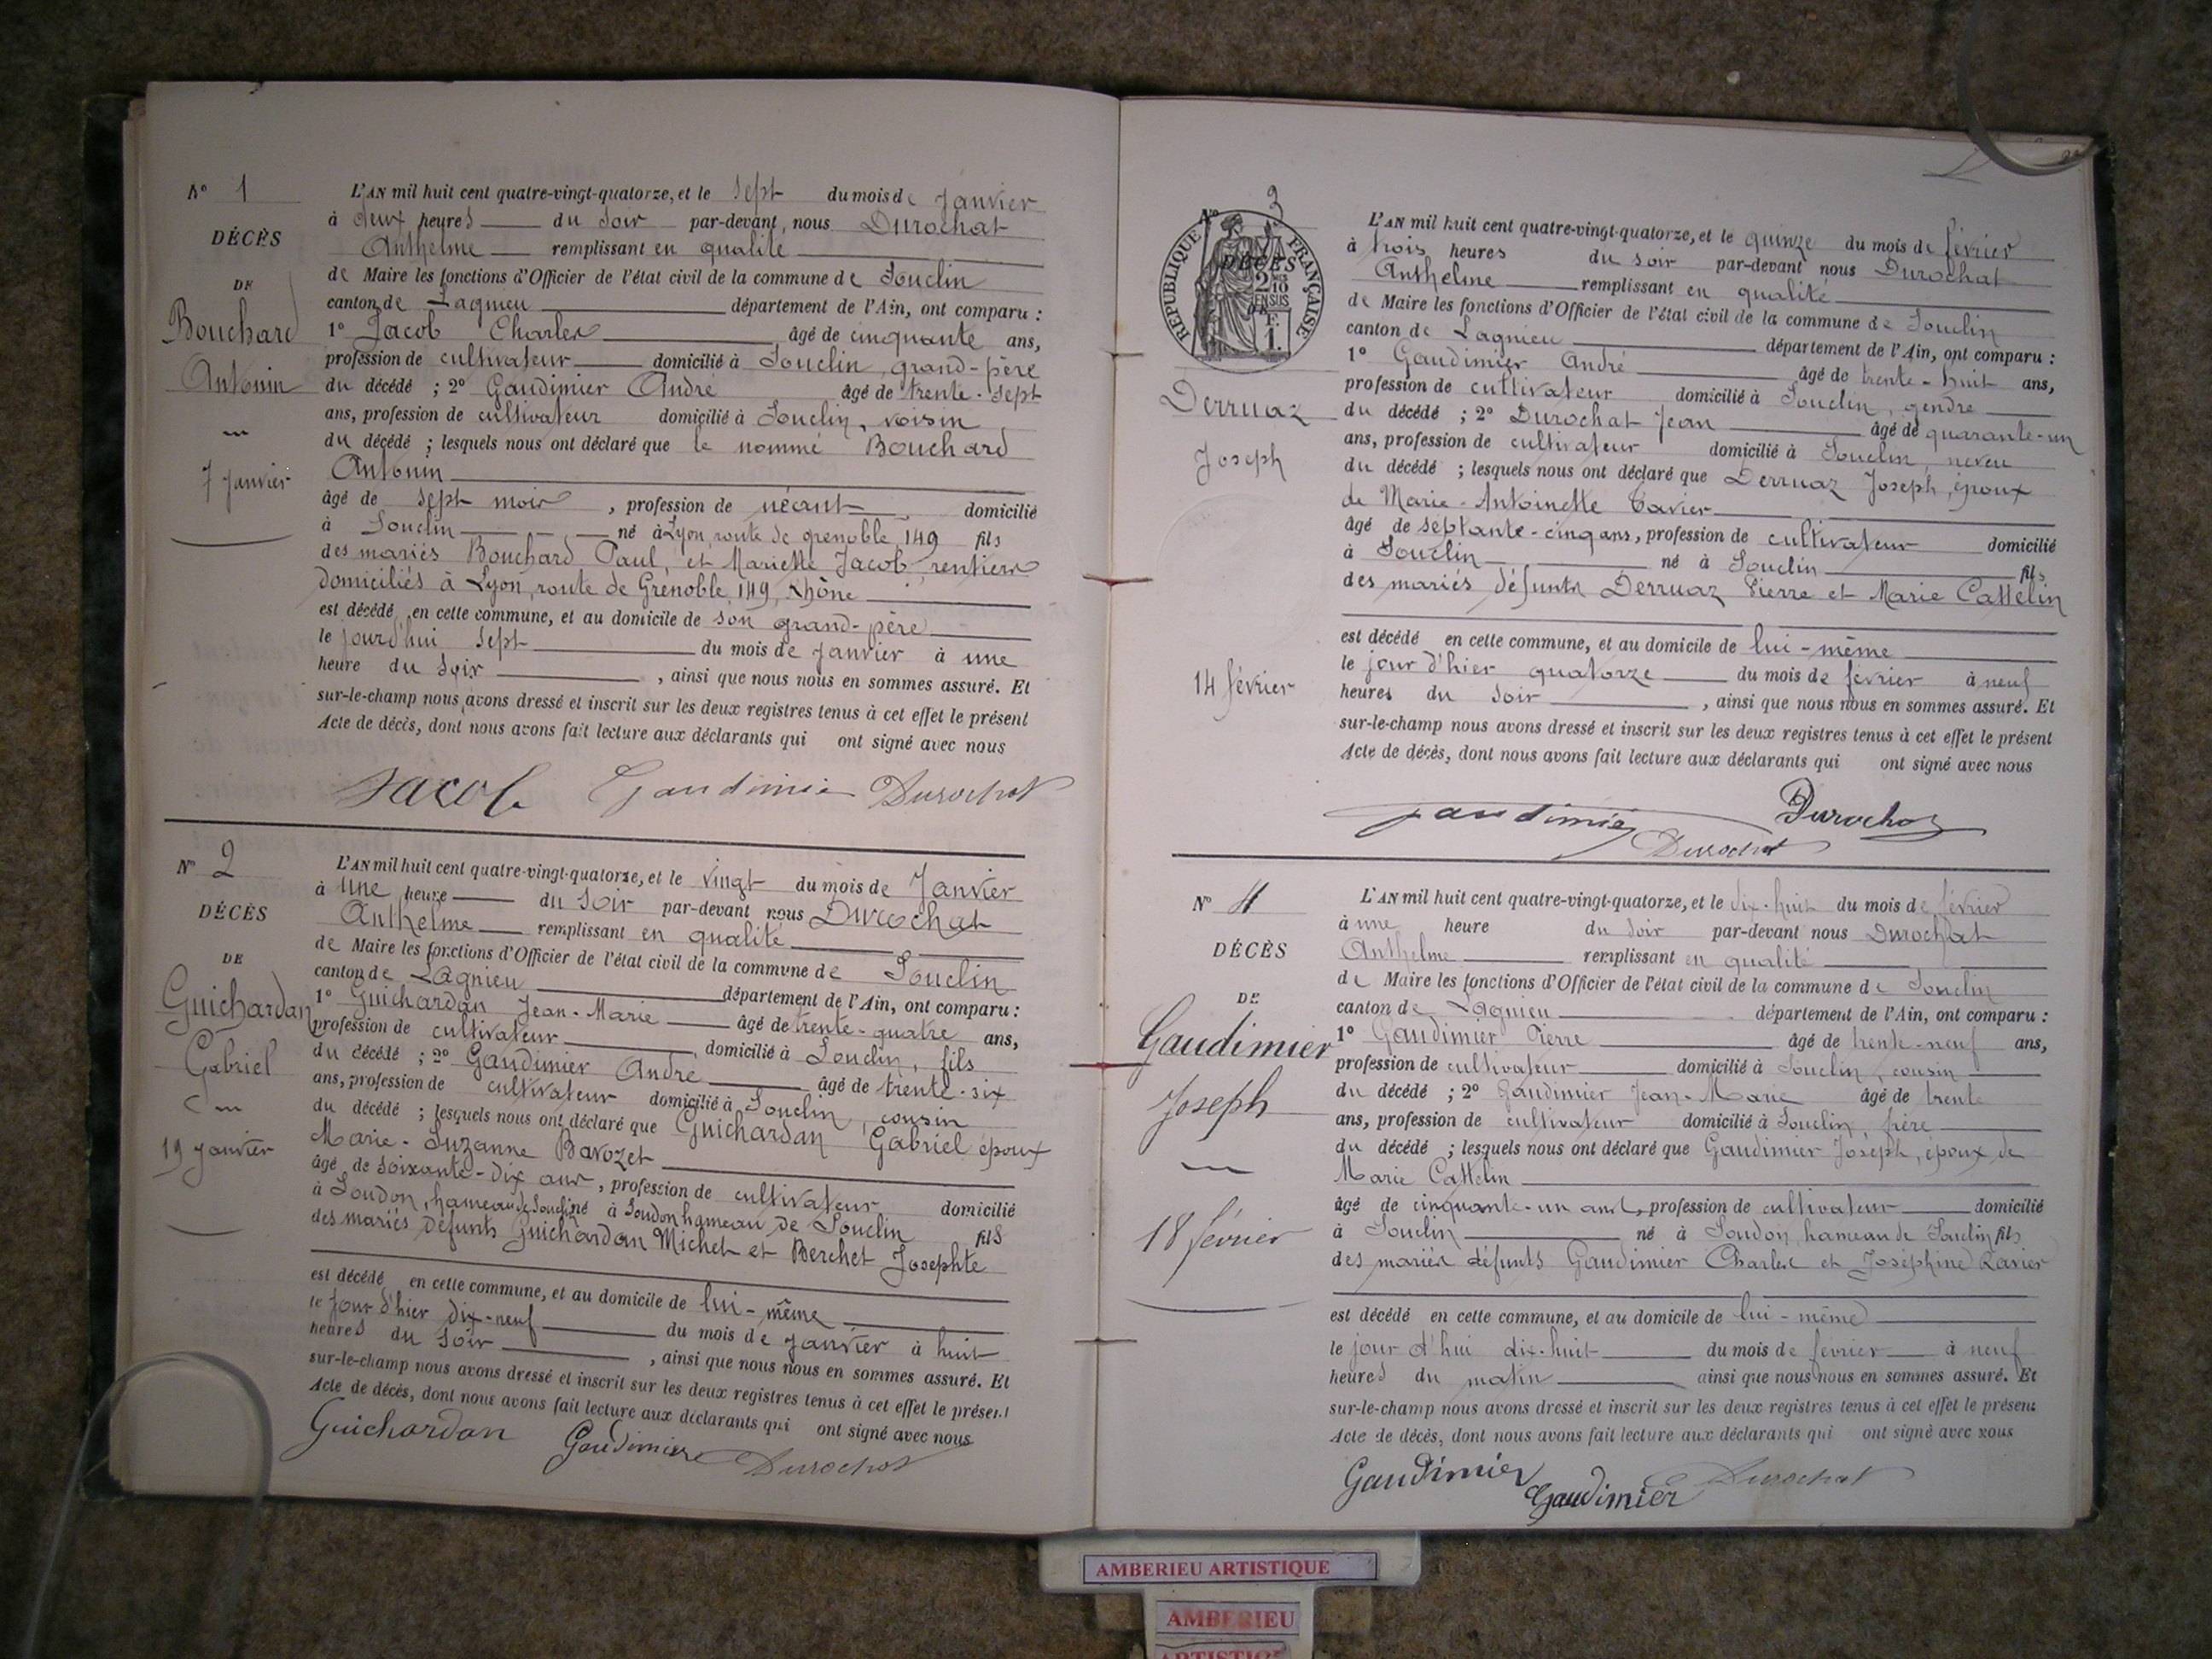 N° 1
DÉCÈS
DE
Bouchard
Antonin
7 Janvier
L'AN mil huit cent quatre-vingt-quatorze, et le sept du mois de Janvier
à deux heures du soir par-devant, nous Durochat
Anthelme remplissant en qualité
de Maire les fonctions d'Officier de l'état civil de la commune de Souclin
canton de Lagnieu département de l'Ain, ont comparu :
1° Jacob Charles âgé de cinquante ans,
profession de cultivateur domicilié à Souclin, grand-père
du décédé ; 2° Gaudimier André âgé de trente-sept
ans, profession de cultivateur domicilié à Souclin, voisin
du décédé ; lesquels nous ont déclaré que le nommé Bouchard
Antonin
âgé de sept mois, profession de néant domicilié
à Souclin né à Lyon, route de grenoble 149 fils
des mariés Bouchard Paul, et Mariette Jacob, rentiers
domiciliés à Lyon, route de Grenoble, 149, Rhône
est décédé en cette commune, et au domicile de son grand-père
le jourd'hui sept du mois de Janvier à une
heure du soir, ainsi que nous nous en sommes assuré. Et
sur-le-champ nous avons dressé et inscrit sur les deux registres tenus à cet effet le présent
Acte de décès, dont nous avons fait lecture aux déclarants qui ont signé avec nous
Jacob Gaudimier Durochat
N° 2
DÉCÈS
DE
Guichardan
Gabriel
19 Janvier
L'AN mil huit cent quatre-vingt-quatorze, et le vingt du mois de Janvier
à une heure du soir par-devant nous Durochat
Anthelme remplissant en qualité
de Maire les fonctions d'Officier de l'état civil de la commune de Souclin
canton de Lagnieu département de l'Ain, ont comparu :
1° Guichardan Jean-Marie âgé de trente-quatre ans,
profession de cultivateur domicilié à Souclin, fils
du décédé ; 2° Gaudimier André âgé de trente-six
ans, profession de cultivateur domicilié à Souclin, cousin
du décédé ; lesquels nous ont déclaré que Guichardan Gabriel époux
Marie-Suzanne Bavozet
âgé de soixante-dix ans, profession de cultivateur domicilié
à Soudon, hameau de Souclin né à Soudon hameau de Souclin fils
des mariés défunts Guichardan Michel et Berchet Josephte
est décédé en cette commune, et au domicile de lui-même
le jour d'hier dix-neuf du mois de Janvier à huit
heures du soir, ainsi que nous nous en sommes assuré. Et
sur-le-champ nous avons dressé et inscrit sur les deux registres tenus à cet effet le présent
Acte de décès, dont nous avons fait lecture aux déclarants qui ont signé avec nous
Guichardan Gaudimier Durochat
N° 3
RÉPUBLIQUE FRANÇAISE
DÉCÈS
2/10
EN SUS
F.
1.
Derruaz
Joseph
14 février
L'AN mil huit cent quatre-vingt-quatorze, et le quinze du mois de février
à trois heures du soir par-devant nous Durochat
Anthelme remplissant en qualité
de Maire les fonctions d'Officier de l'état civil de la commune de Souclin
canton de Lagnieu département de l'Ain, ont comparu :
1° Gaudimier André âgé de trente-huit ans,
profession de cultivateur domicilié à Souclin, gendre
du décédé ; 2° Durochat Jean âgé de quarante-un
ans, profession de cultivateur domicilié à Souclin, neveu
du décédé ; lesquels nous ont déclaré que Derruaz Joseph, époux
de Marie-Antoinette Tavier
âgé de septante-cinq ans, profession de cultivateur domicilié
à Souclin né à Souclin fils
des mariés défunts Derruaz Pierre et Marie Cattelin
est décédé en cette commune, et au domicile de lui-même
le jour d'hier quatorze du mois de février à neuf
heures du soir, ainsi que nous nous en sommes assuré. Et
sur-le-champ nous avons dressé et inscrit sur les deux registres tenus à cet effet le présent
Acte de décès, dont nous avons fait lecture aux déclarants qui ont signé avec nous
Gaudimier Durochat
Durochat
N° 4
DÉCÈS
DE
Gaudimier
Joseph
18 février
L'AN mil huit cent quatre-vingt-quatorze, et le dix-huit du mois de février
à une heure du soir par-devant nous Durochat
Anthelme remplissant en qualité
de Maire les fonctions d'Officier de l'état civil de la commune de Souclin
canton de Lagnieu département de l'Ain, ont comparu :
1° Gaudimier Pierre âgé de trente-neuf ans,
profession de cultivateur domicilié à Souclin, cousin
du décédé ; 2° Gaudimier Jean-Marie âgé de trente
ans, profession de cultivateur domicilié à Souclin, frère
du décédé ; lesquels nous ont déclaré que Gaudimier Joseph, époux de
Marie Cattelin
âgé de cinquante-un ans, profession de cultivateur domicilié
à Souclin né à Soudon, hameau de Souclin fils
des mariés défunts Gaudimier Charles et Joséphine
est décédé en cette commune, et au domicile de lui-même
le jour d'hui dix-huit du mois de fevrier à neuf
heures du matin ainsi que nous nous en sommes assuré. Et
sur-le-champ nous avons dressé et inscrit sur les deux registres tenus à cet effet le présent
Acte de décès, dont nous avons fait lecture aux déclarants qui ont signé avec nous
Gaudimier Gaudimier Durochat
AMBERIEU ARTISTIQUE
AMBERIEU
ARTISTIQUE